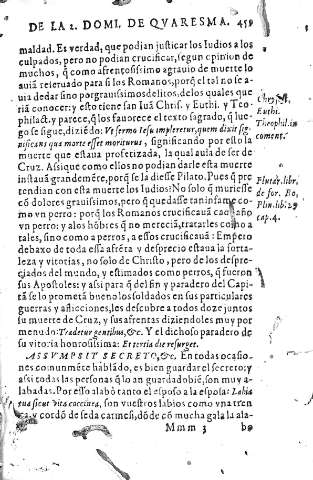 DE LA 2. DOMI. DE QVARESMA. 459
maldad. Es verdad, que podian justicar los Iudios a los
culpados, pero no podian crucificar, segun opinion de
muchos, q̃ como afrentosissimo agrauio de muerte lo
auiã reseruado para si los Romanos, porq̃ el tal no se a-
uia de dar sino por grauissimos delitos, de los quales que
riã conocer: y esto tiene san Iuã Chris. y Euthi. y Teo-
philact. y parece, q̃ los fauorece el texto sagrado, q̃ lue-
go se sigue, diziẽdo: Vt sermo Iesu impleretur, quem dixit sig-
nificans qua morte esset moriturus, significando por esto la
muerte que estaua profetizada, la qual auia de ser de
Cruz. Assi que como ellos no podian darle esta muerte
instauã grandemẽte, porq̃ se la diesse Pilato. Pues q̃ pre
tendian con esta muerte los Iudios? No solo q̃ muriesse
cõ dolores grauissimos, pero q̃ quedasse tan infame co-
mo vn perro: porq̃ los Romanos crucificauã cada año
vn perro; y a los hõbres q̃ no merecia, tratarles como a
tales, sino como a perros, a essos crucificauã: Empero
debaxo de toda essa afrẽta y desprecio estaua la forta-
leza y vitorias, no solo de Christo, pero de los despre-
ciados del mundo, y estimados como perros, q̃ fueron
sus Apostoles: y assi para q̃ del fin y paradero del Capi-
tã se lo prometã bueno los soldados en sus particulares
guerras y afliciones, les descubre a todos doze juntos
su muerte de Cruz, y sus afrentas diziendoles muy por
menudo: Tradetur gentibus, &c. Y el dichoso paradero de
su vitoria honrosissima: Et tertia die resurget.
ASSVMPSIT SECRETO, &c. En todas ocasio-
nes comunmẽte hablãdo, es bien guardar el secreto; y
assi todas las personas q̃ lo an guardado biẽ, son muy a-
labadas. Por esso alabò tanto el esposo a la esposa: Labia
tua sicut vita coccinea, son vuestros labios como vna tren
ça, y cordõ de seda carmesi, dõde cõ mucha gala la ala-
Mmm 3 bo
Chrys.
Euthi.
Theophil. in
coment.
Plutar. libr.
de for. Ro.
Plin. lib. 29
cap. 4.